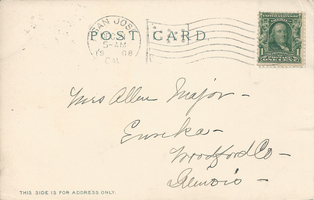 SAN JOSE
5-AM
CAL.
POST CARD.
1
Mrs Allen Major -
Eureka -
Woodford Co -
Illinois -
THIS SIDE IS FOR ADDRESS ONLY.